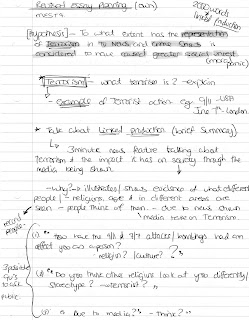 Revised Essay Planning (own)
2000 words
linked production
MEST4
[Hypothesis] - To what extent has the representation
of terrorism in TV News and
considered to have caused greater social unrest
(more panic)
* TERRORISM - what terrorism is? - explain
- example of terrorist action e.g. 9/11 - USA
7th - London
* Talk about linked production (brief summary)
↳ 3 minute news feature talking about
terrorism & the impact it has on society through the
media being shown
- why? → illustrates/shows evidence of what different
people/- religions, age & in different areas are
seen - people think of them. - due to news shown
media have on Terrorism.
record people:
(1) "How have the 9/11 & 7/7 attacks/bombings had an
affect on you as a person?
religion? / culture?"
3 possible
qu's
to ask
public
(2) "Do you think other religions look at you differently/
stereotype? → terrorist?"
↳ Due to media? - think?"